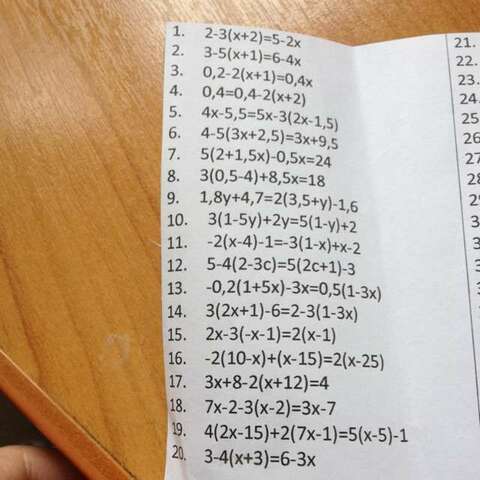 1. 2-3(x+2)=5-2x
2. 3-5(x+1)=6-4x
3. 0,2-2(x+1)=0,4x
4. 0,4=0,4-2(x+2)
5. 4x-5,5=5x-3(2x-1,5)
6. 4-5(3x+2,5)=3x+9,5
7. 5(2+1,5x)-0,5x=24
8. 3(0,5-4)+8,5x=18
9. 1,8y+4,7=2(3,5+y)-1,6
10. 3(1-5y)+2y=5(1-y)+2
11. -2(x-4)-1=-3(1-x)+x-2
12. 5-4(2-3c)=5(2c+1)-3
13. -0,2(1+5x)-3x=0,5(1-3x)
14. 3(2x+1)-6=2-3(1-3x)
15. 2x-3(-x-1)=2(x-1)
16. -2(10-x)+(x-15)=2(x-25)
17. 3x+8-2(x+12)=4
18. 7x-2-3(x-2)=3x-7
19. 4(2x-15)+2(7x-1)=5(x-5)-1
20. 3-4(x+3)=6-3x
21.
22.
23.
24.
25
26
27
28